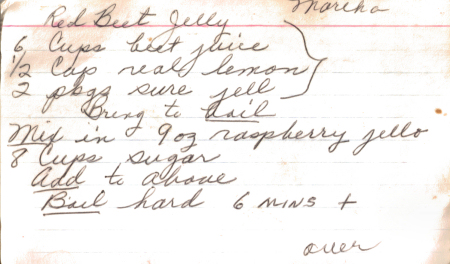 Martha
Red Beet Jelly
6 Cups beet juice
1/2 Cup real lemon
2 pkgs sure jell
Bring to boil
Mix in 9 oz raspberry jello
8 Cups sugar
Add to above
Boil hard 6 MINS +
over